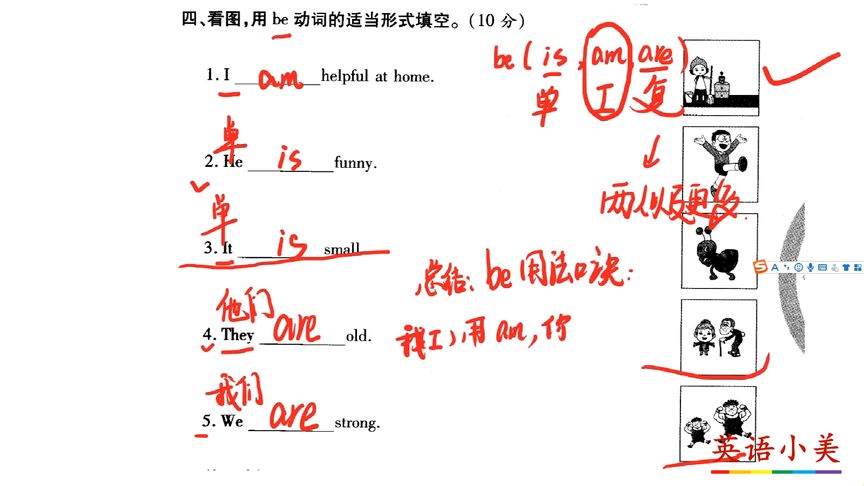 四、看图,用 be 动词的适当形式填空。(10 分)
be ( is , am are )
单 I 复
1. I am helpful at home.
两个以及更多.
单
2. He is funny.
单
3. It is small
总结: be 用法口诀:
他们
4. They are old.
我(I)用 am, 你
我们
5. We are strong.
英语小美